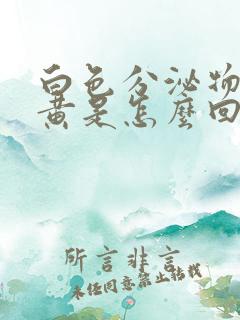 白色分泌物
黄是怎麼回
所言非言
未经同意禁止转载